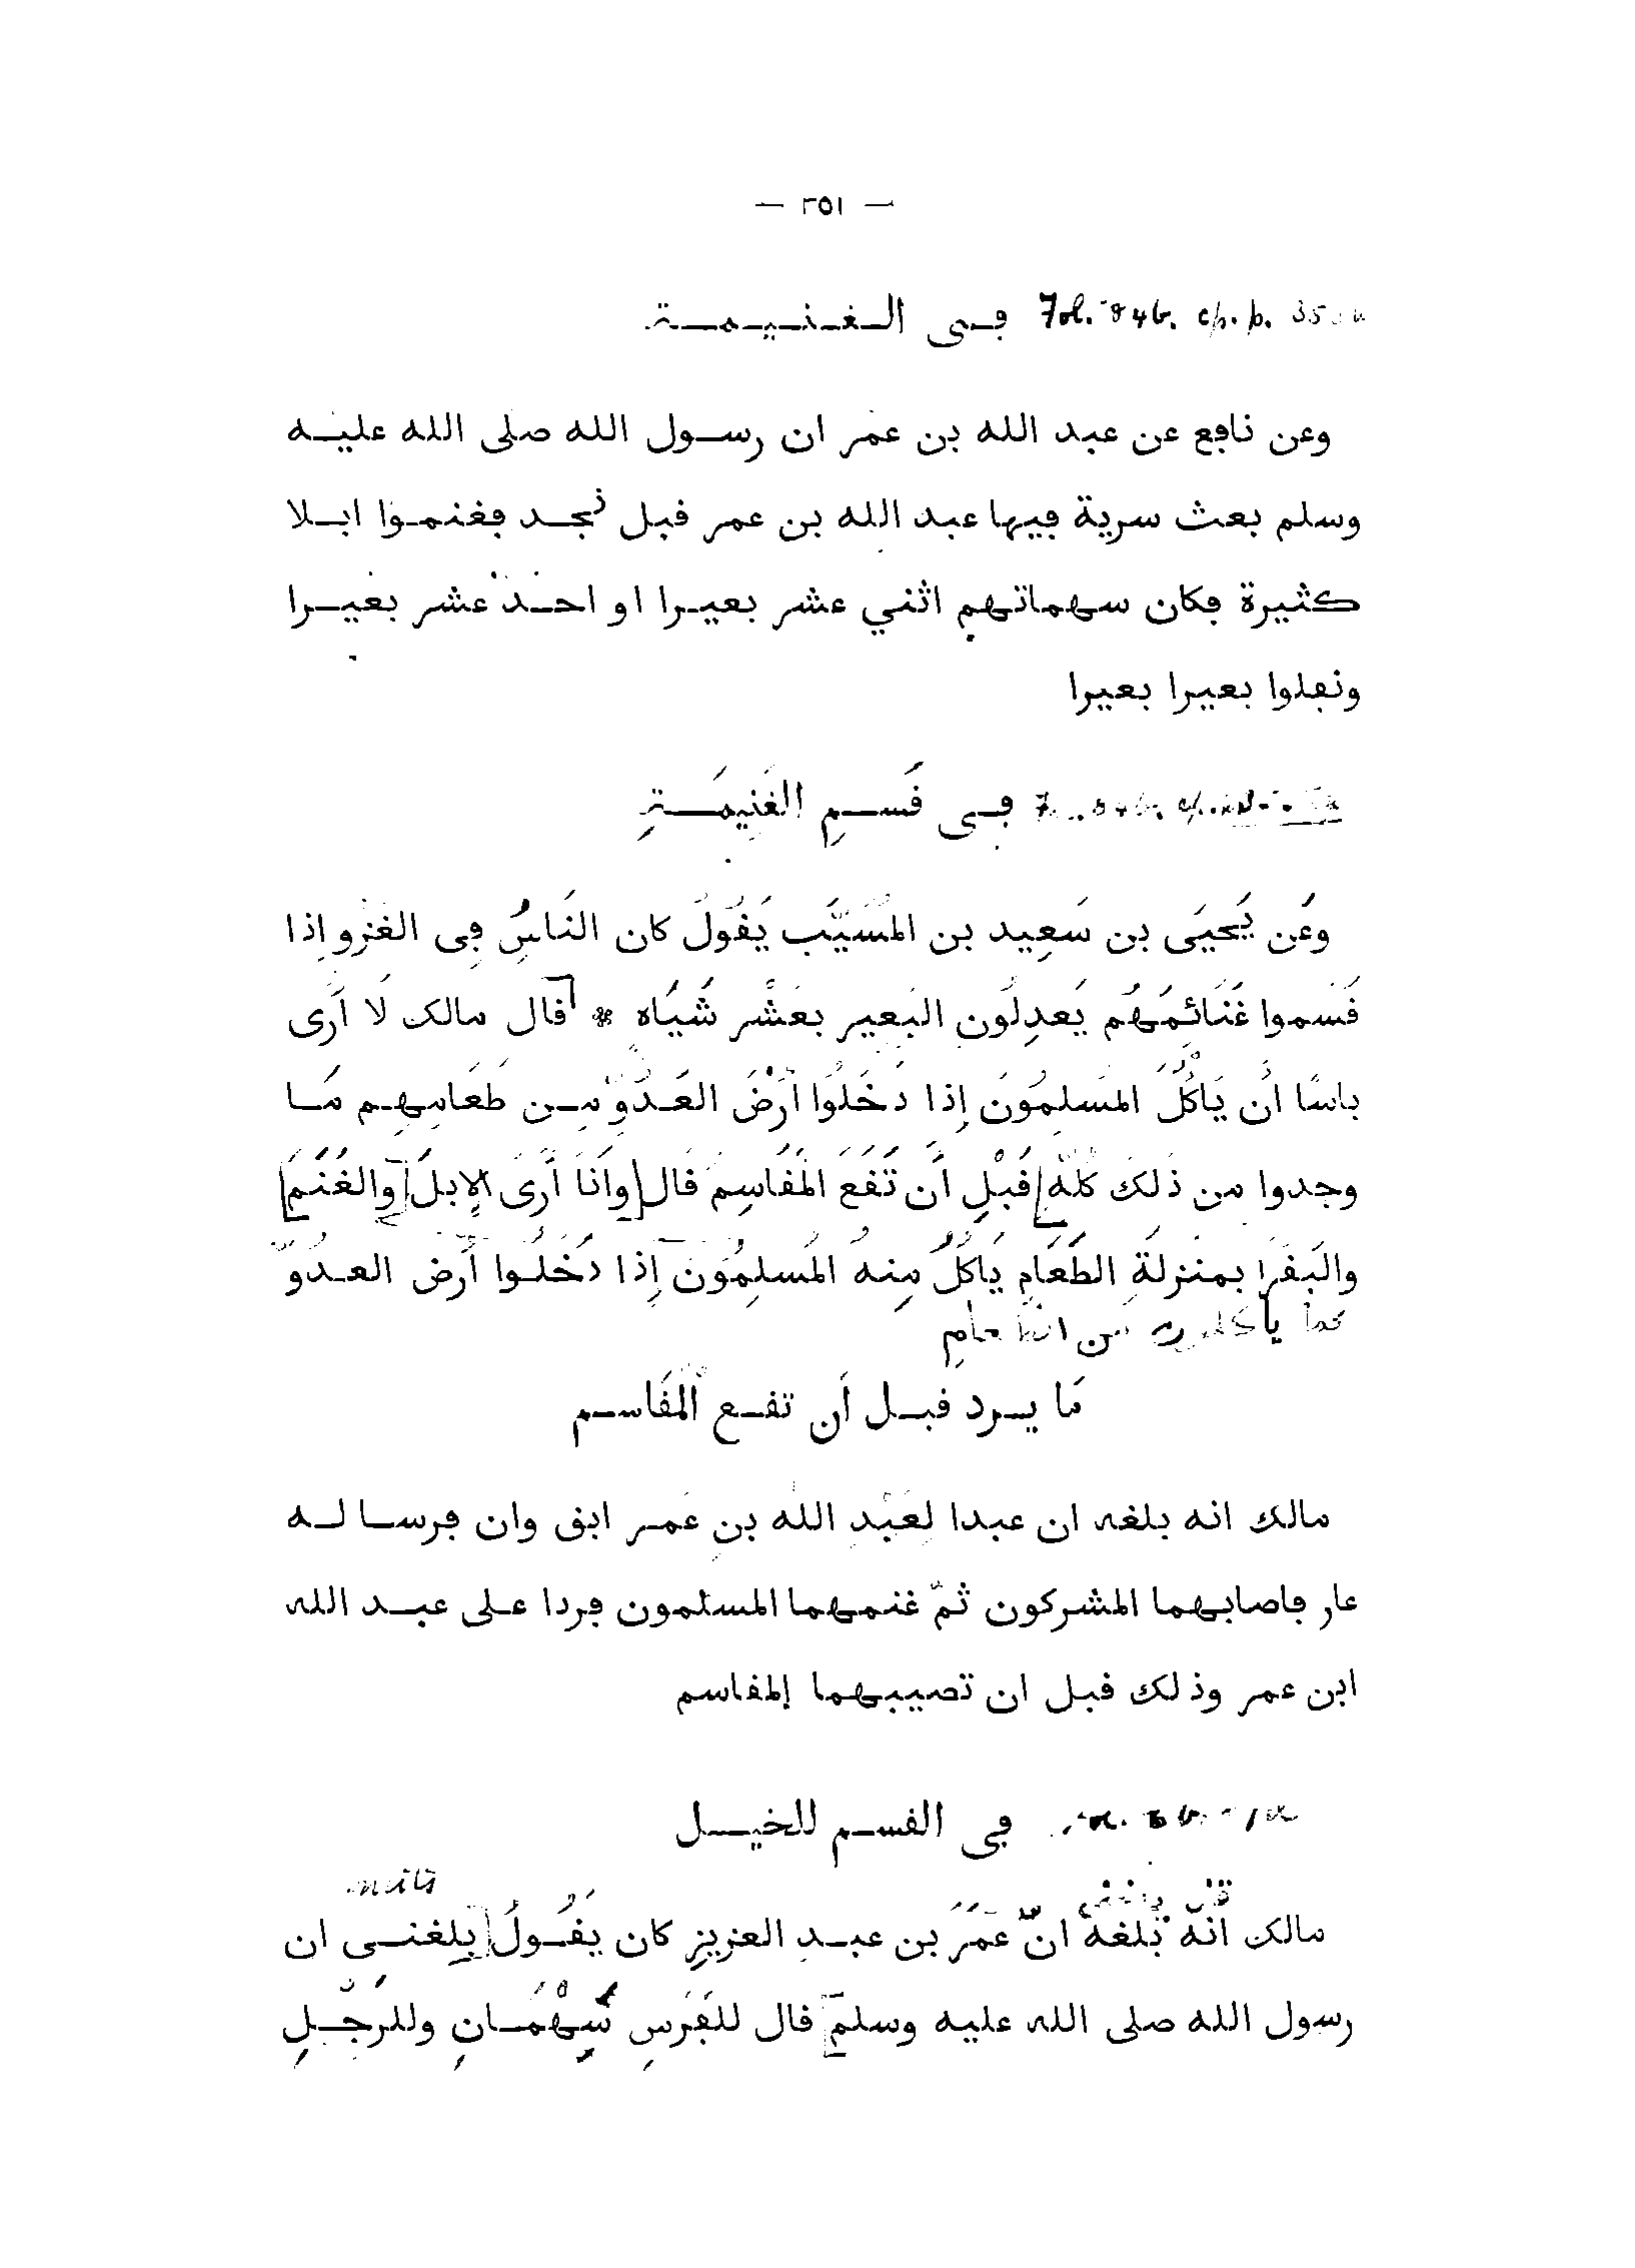 — ٢٥١ —
Fol. 84b. cp. p. في الغنيمة
وعن نافع عن عبد الله بن عمر ان رسول الله صلى الله عليه
وسلم بعث سرية فيها عبد الله بن عمر قبل نجد فغنموا ابلا
كثيرة فكان سهماتهم اثني عشر بعيرا او احد عشر بعيرا
ونفلوا بعيرا بعيرا
في قَسمِ الغَنِيمَةِ
وعَن يَحيَى بن سَعِيد بن المُسَيَّب يَقُولُ كان النَاسُ فِى الغَزو إذا
قَسَموا غَنَائِمَهُم يَعدِلُون البَعير بعَشْر شَيَاه * قال مالك لَا أَرى
باسًا أن يَاكُلَ المُسلِمُونَ إذا دَخَلُوا أَرْضَ العَدُوّ مِن طَعَامِهِم مَا
وجدوا من ذَلكَ كُلّهِ [قَبْلِ أَن تَقَعَ المَقَاسِمُ قَال] وأَنَا أَرَى الإبلَ [والغَنَمَ]
والبَقَرَ بمنزلةِ الطَعَامِ يَاكُلُ مِنهُ المُسلِمُونَ إذا دَخَلُوا أَرض العدُوّ
كما يأكلون من الطعامِ
مَا يرد قبل أن تقع المَقَاسم
مالك انه بلغه ان عبدا لعَبْدِ الله بن عمر ابق وان فرسا له
عار فاصابهما المشركون ثمّ غنمهما المسلمون فردا على عبد الله
ابن عمر وذلك قبل ان تصيبهما المقاسم
في القسم للخيل
مالك انّه بلغهُ انّ عُمَرَ بن عبد العزيز كان يَقُولُ [بلغني ان
رسول الله صلى الله عليه وسلم] قال للفَرَسِ سَهْمَانِ وللرَجُلِ